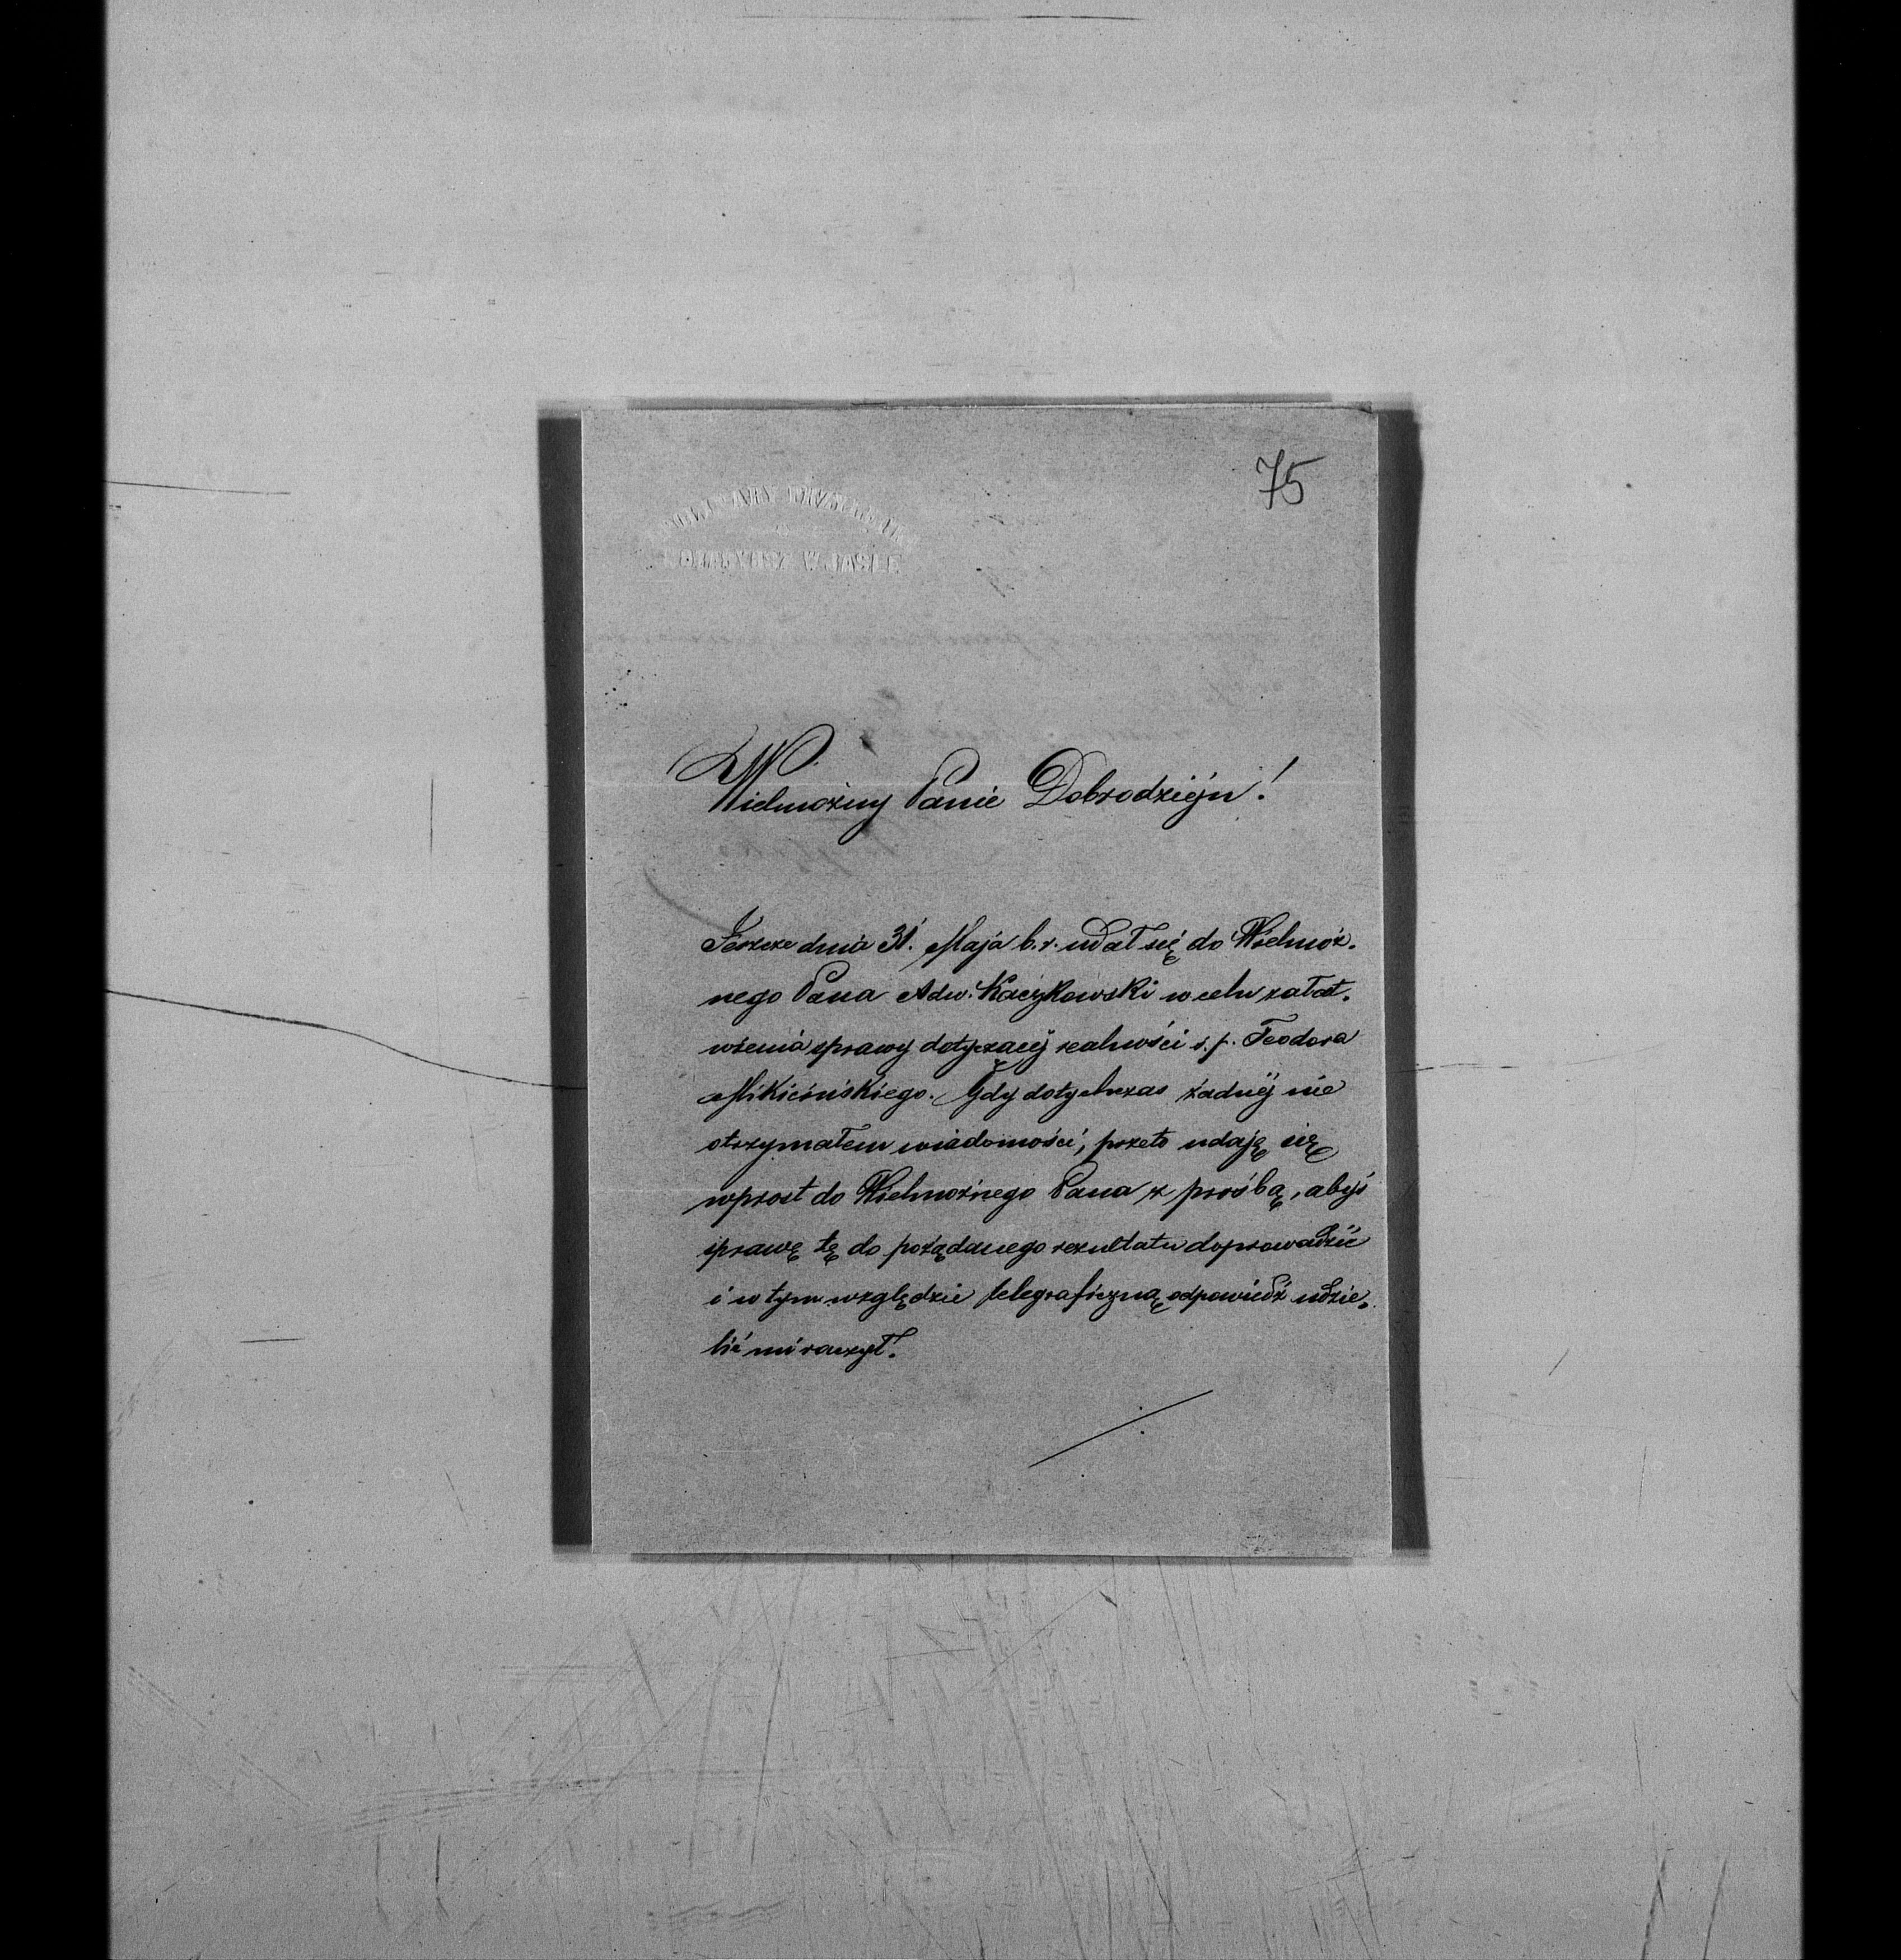 75
NOTARYUSZ W JAŚLE
Wielmożny Panie Dobrodzieju!
Jeszcze dnia 31. Maja b. r. udał się do Wielmoż-
nego Pana Adw. Kaczkowski w celu załat-
wienia sprawy dotyczącéj realności ś. p. Teodora
Mikicińskiego. Gdy dotychczas żadnéj nie
otrzymałem wiadomości, przeto udaję się
wprost do Wielmożnego Pana z prośbą, abyś
sprawę tę do pożądanego rezultatu doprowadzić
i w tym względzie telegraficzną odpowiedź udzie-
lić mi raczył.